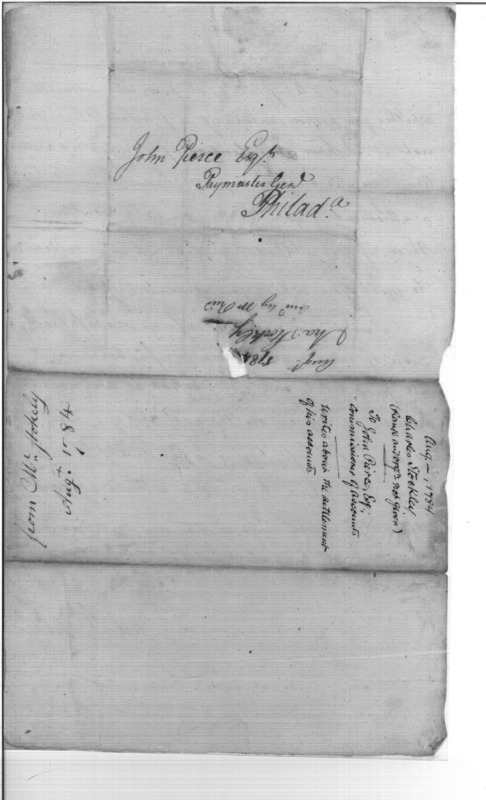 John Pierce Esqr.
Paymaster Genl
Philada.
Augt. 1784
Chas. Stockly
by Mr
Aug—, 1784
Charles Stockley
(Rank and orgn. not given)
To John Pierce, Esq;
Commissioner of Accounts
Writes about the settlement
of his accounts
from Mr. Stokely
Augt. 1784